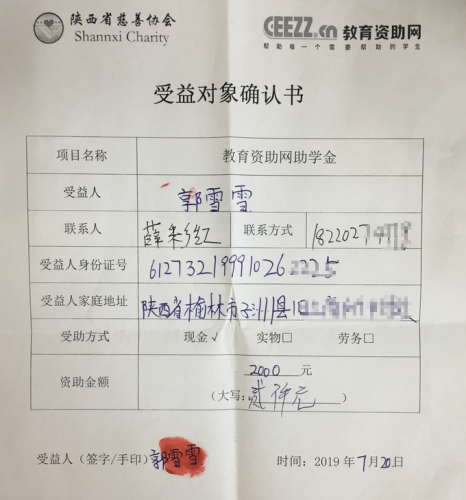 陕西省慈善协会
Shannxi Charity
CEEZZ.cn 教育资助网
帮助每一个需要帮助的学生
受益对象确认书
项目名称 教育资助网助学金
受益人 郭雪雪
联系人 薛来红 联系方式 1822027
受益人身份证号 61273219991026
受益人家庭地址 陕西省榆林市子洲县
受助方式 现金√ 实物□ 劳务□
资助金额 2000 元
(大写:贰仟元)
受益人(签字/手印) 郭雪雪 时间:2019年7月20日